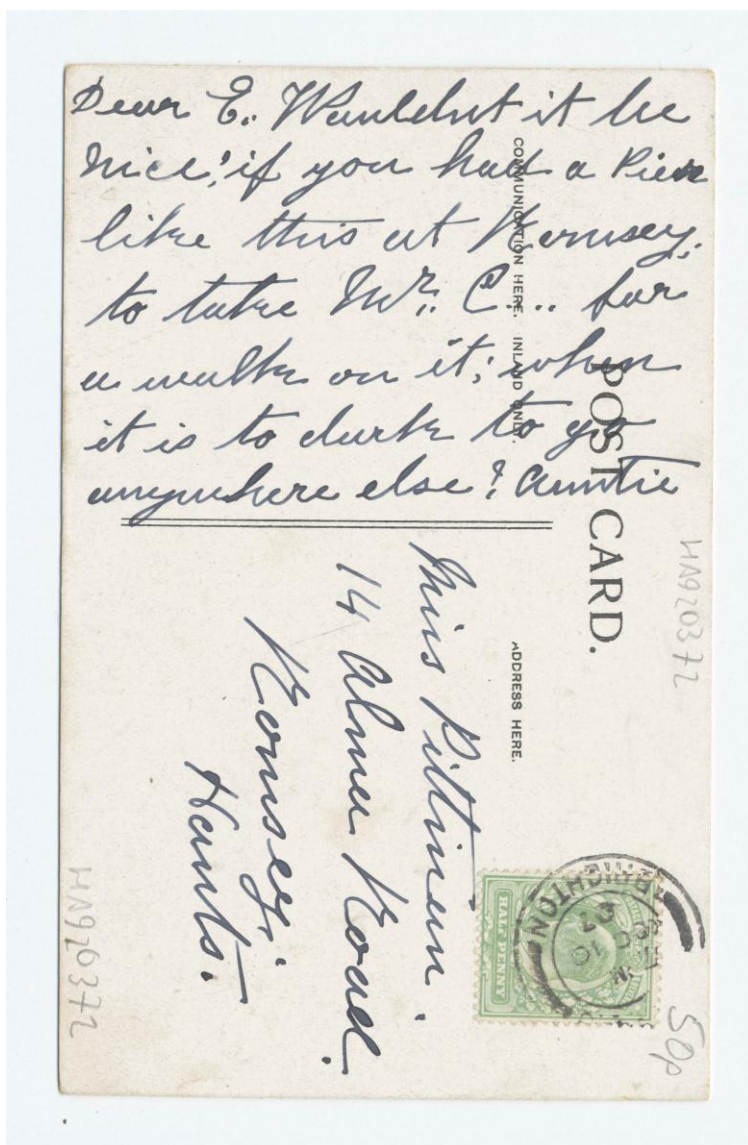 Dear E. Wouldnt it be
nice! if you had a Pier
like this at Romsey,
to take Mr. C... for
a walk on it; when
it is to dark to go
anywhere else? Auntie
POST CARD.
COMMUNICATION HERE. INLAND ONLY.
ADDRESS HERE.
Miss Pittman.
14 Alma Road.
Romsey.
Hants.
HALF PENNY
BRIGHTON
OC 10
07
HA920372
HA920372
50p